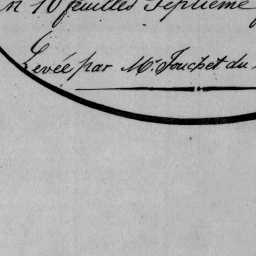 en 10 feuilles Septieme
Levée par Mr. Fouchet du